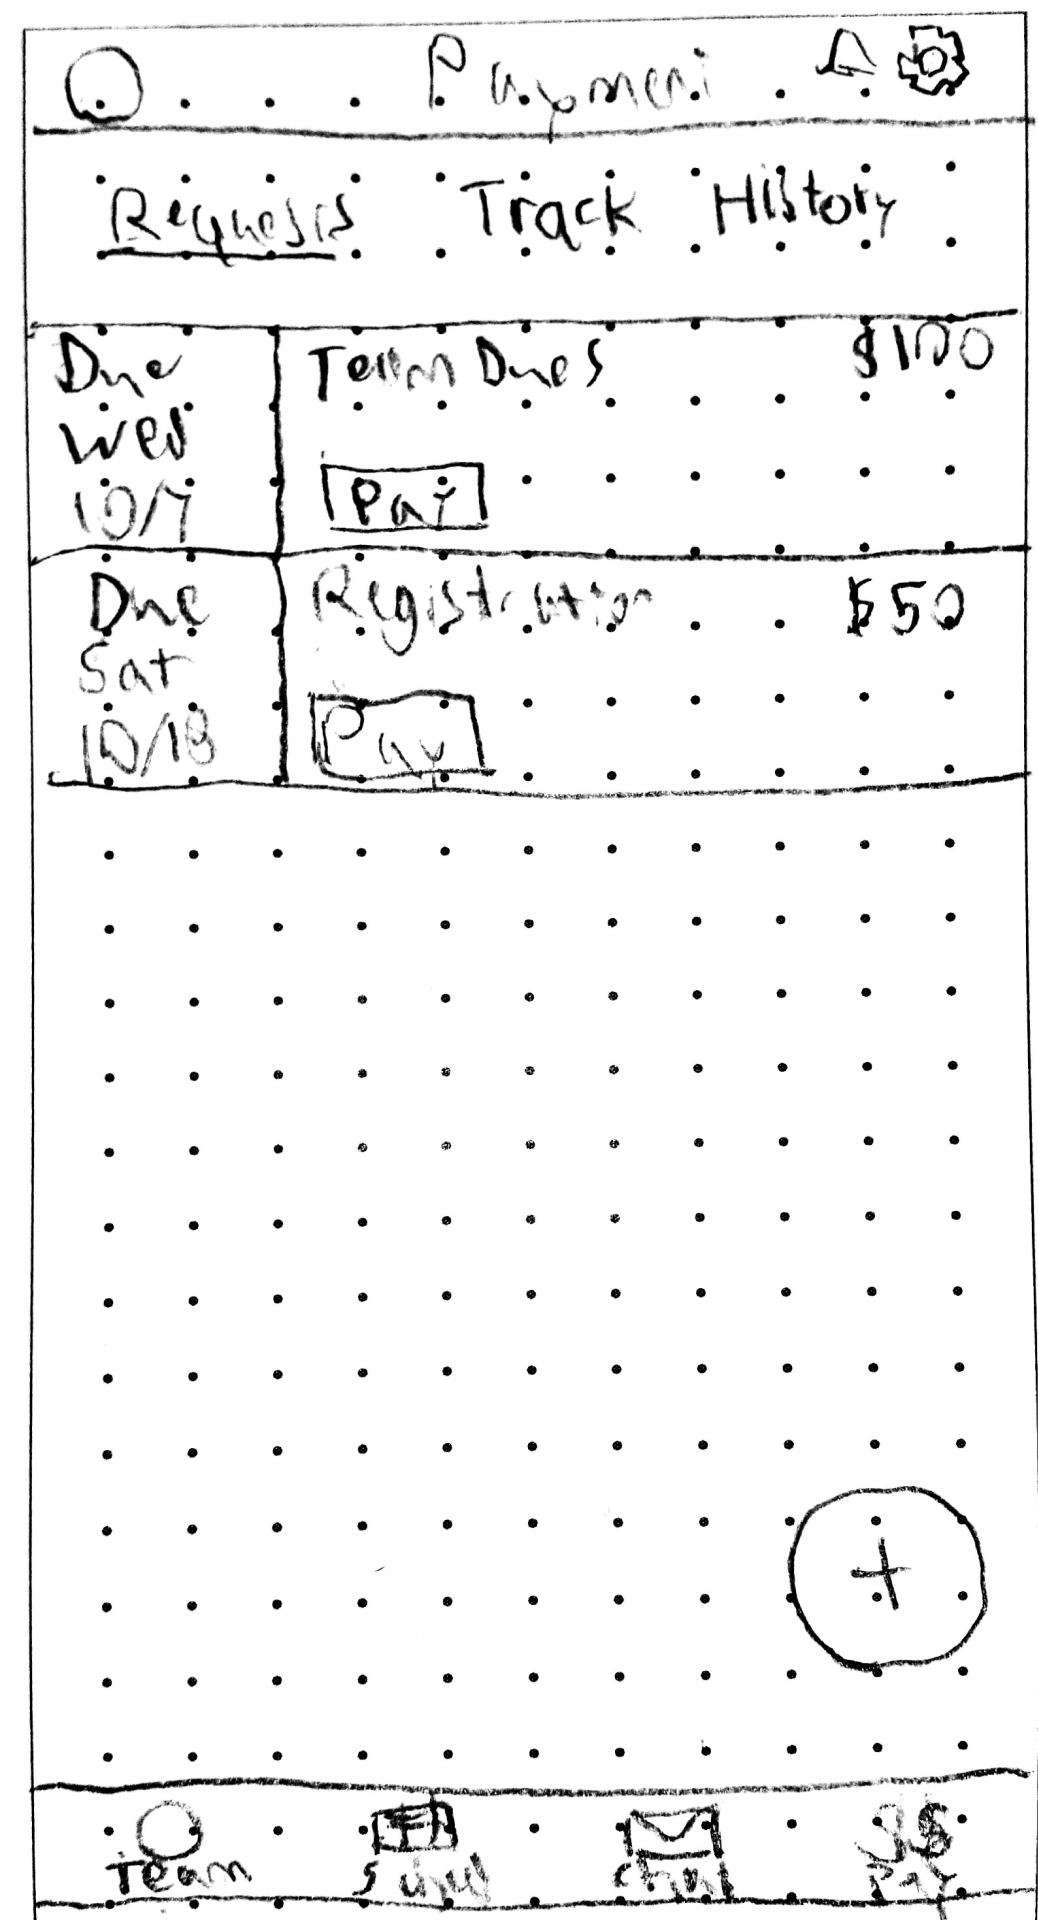 Payment
Requests Track History
Due
Wed
10/7
Team Dues $100
Pay
Due
Sat
10/18
Registration $50
Pay
+
Team
Pay